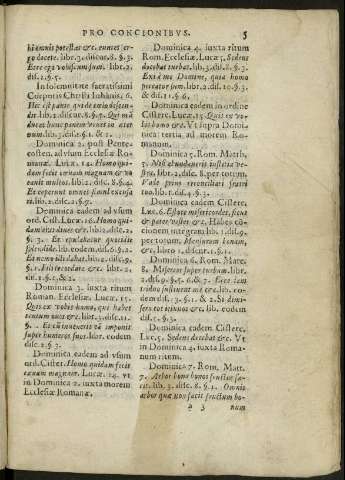 PRO CONCIONIBVS. 5
hi omnis potestas &c. euntes ergo
docete. libr. 3. discur. 8. §. 3.
Ecce ego vobiscum sum. libr. 2.
dis. 2. §. 5.
In solemnitate sacratissimi
Corporis Christi Iohannis. 6.
Hic est panis qui de cælo descendit.
lib. 2. discur. 8. §. 5. Qui manducat
hunc panem viuet in æternum.
lib. 3. dis. 5. §. 1. & 2.
Dominica 2. post Pentecosten.
ad vsum Ecclesiæ Romanæ.
Lucæ. 14. Homo quidam
fecit cœnam magnam & vocauit
multos. lib. 2. disc. 8. §. 4.
Et cœperunt omnes simul excusare.
lib. 2. dis. 2. §. 7.
Dominica eadem ad vsum
ord. Cist. Lucæ. 16. Homo quidam
erat diues &c. lib. 2. disc. 2.
§. 3. Et epulabatur quotidie
splendide. lib. eodem. dis. 6. §. 2.
Et nemo illi dabat. lib. 2. disc. 9.
§. 1. Fili recordare &c. libr. 2.
dis. 1. §. 1. & 2.
Dominica 3. iuxta ritum
Roman. Ecclesiæ. Lucæ. 15.
Quis ex vobis homo, qui habet
centum oues &c. lib. 3. disc. 11.
§. . Et cùm inuenerit eã imponit
super humeros suos. libr. eodem
disc. 2. §. 3.
Dominica eadem ad vsum
ord. Cister. Homo quidam fecit
cœnam magnam. Lucæ. 14. vt
in Dominica 2. iuxta morem
Ecclesiæ Romanæ.
Dominica 4. iuxta ritum
Rom. Ecclesiæ. Lucæ. 5. Sedens
docebat turbas. lib. 3. dis. 8. §. 3.
Exi à me Domine, quia homo
peccator sum. libr. 2. dis. 10. §. 3.
& dis. 1 §. 6.
Dominica eadem in ordine
Cisterc. Lucæ. 15. Quis ex vobis
homo &c. Vt supra Dominica
tertia ad morem Romanum.
Dominica 5. Rom. Matth.
5. Nisi abundauerit iustitia vestra.
libr. 2. disc. 8. per totum.
Vade prius reconciliari fratri
tuo. lib. 1. dis. 4. §. 3.
Dominica eadem Cisterc.
Luc. 6. Estote misericordes, sicut
& pater vester, &c. Habes concionem
integram lib. 1. dis. 9.
per totum. Mensuram bonam,
&c. libro 1. disc. 9. §. 1.
Dominica 6. Rom. Matt.
8. Misereor super turbam. libr.
2. dis. 9. §. 5. 6. & 7. Ecce iam
triduo sustinent me &c. lib. eodem
dis. 3. §. 1. & 2. Si dimisero
eos ieiunos &c. lib. eodem
dis. 1. §. 3.
Dominica eadem Cisterc.
Luc. 5. Sedens docebat &c. Vt
in Dominica 4. iuxta Romanum
ritum.
Dominica 7. Rom. Matt.
7. Arbor bona bonos fructus facit.
lib. 3. disc. 8. §. 1. Omnis
arbor quæ non facit fructum bo-
a 3 num